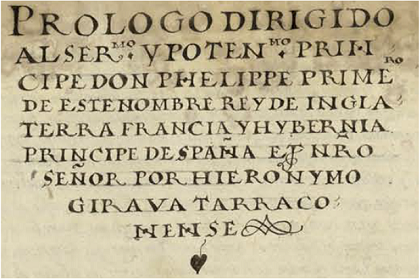 PROLOGO DIRIGIDO
AL SER.ᵐᵒ Y POTEN.ᵐᵒ PRIN-
CIPE DON PHELIPPE PRIMEᴿᴼ
DE ESTE NOMBRE REY DE INGLA-
TERRA FRANCIA Y HYBERNIA
PRINÇIPE DE SPAÑA ETC NRO
SEÑOR POR HIERONYMO
GIRAVA TARRACO-
NENSE